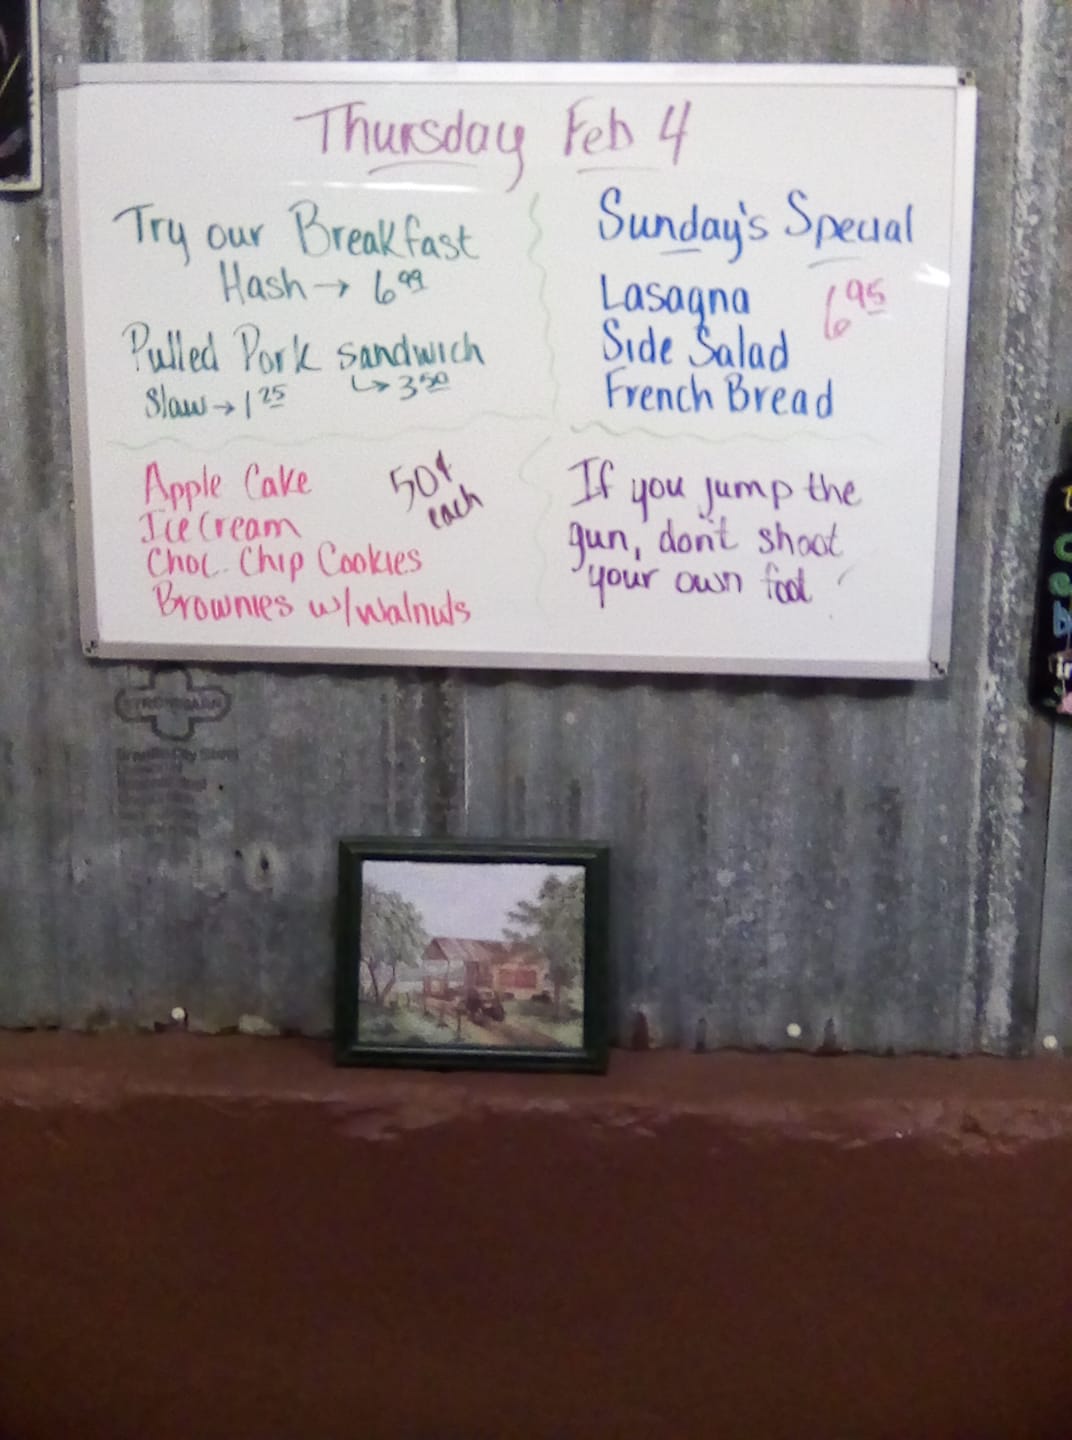 Thursday Feb 4
Try our Breakfast
Hash → 6 99
Pulled Pork sandwich
↳ 3 50
Slaw → 1 25
Sunday's Special
Lasagna 6 95
Side Salad
French Bread
Apple Cake
Ice Cream
Choc. Chip Cookies
Brownies w/walnuts
50¢
each
If you jump the
gun, don't shoot
your own foot
STRONGBARN